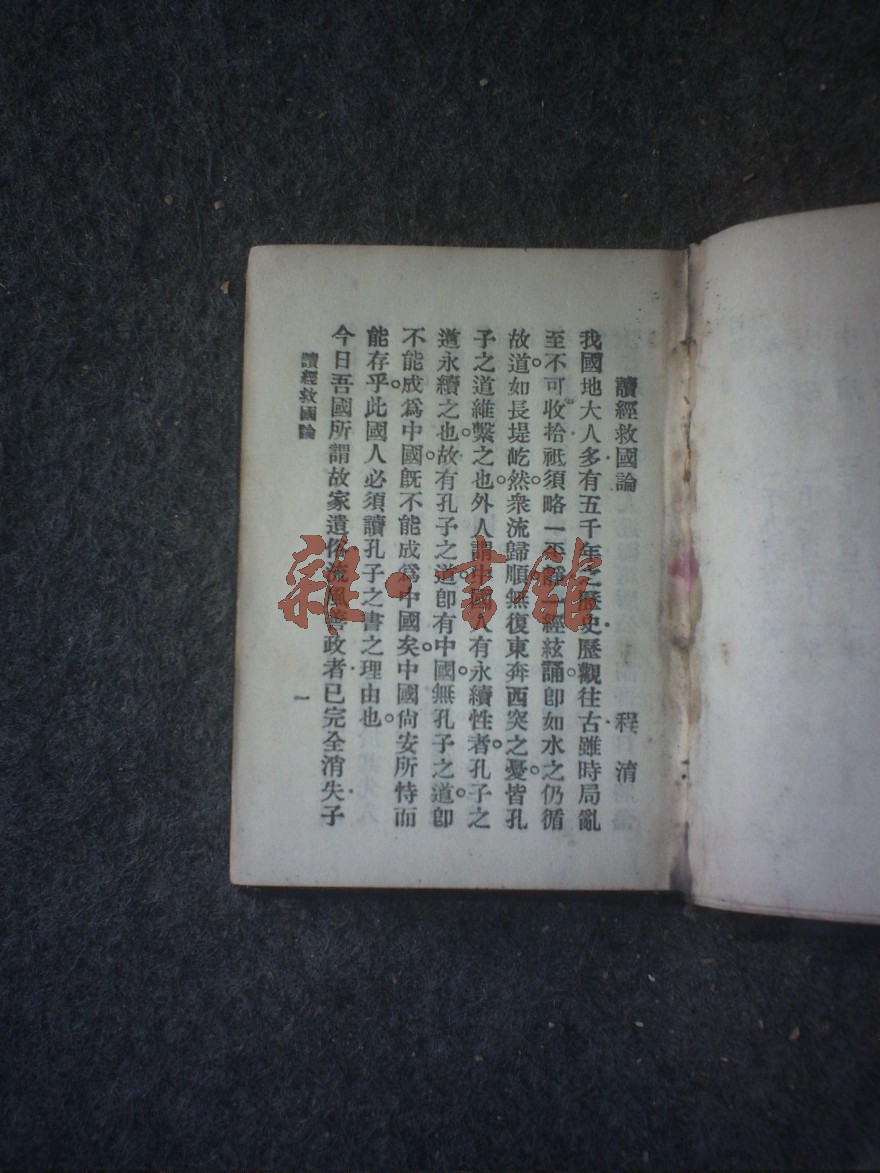 讀經救國論　程淯
我國地大人多有五千年之歷史歷觀往古雖時局亂
至不可收拾祗須略一平靜一經絃誦卽如水之仍循
故道如長堤屹然衆流歸順無復東奔西突之憂皆孔
子之道維繫之也外人謂中國人有永續性者孔子之
道永續之也故有孔子之道卽有中國無孔子之道卽
不能成爲中國旣不能成爲中國矣中國尙安所恃而
能存乎此國人必須讀孔子之書之理由也
今日吾國所謂故家遺俗流風善政者已完全消失子
讀經救國論
一
雜·書館